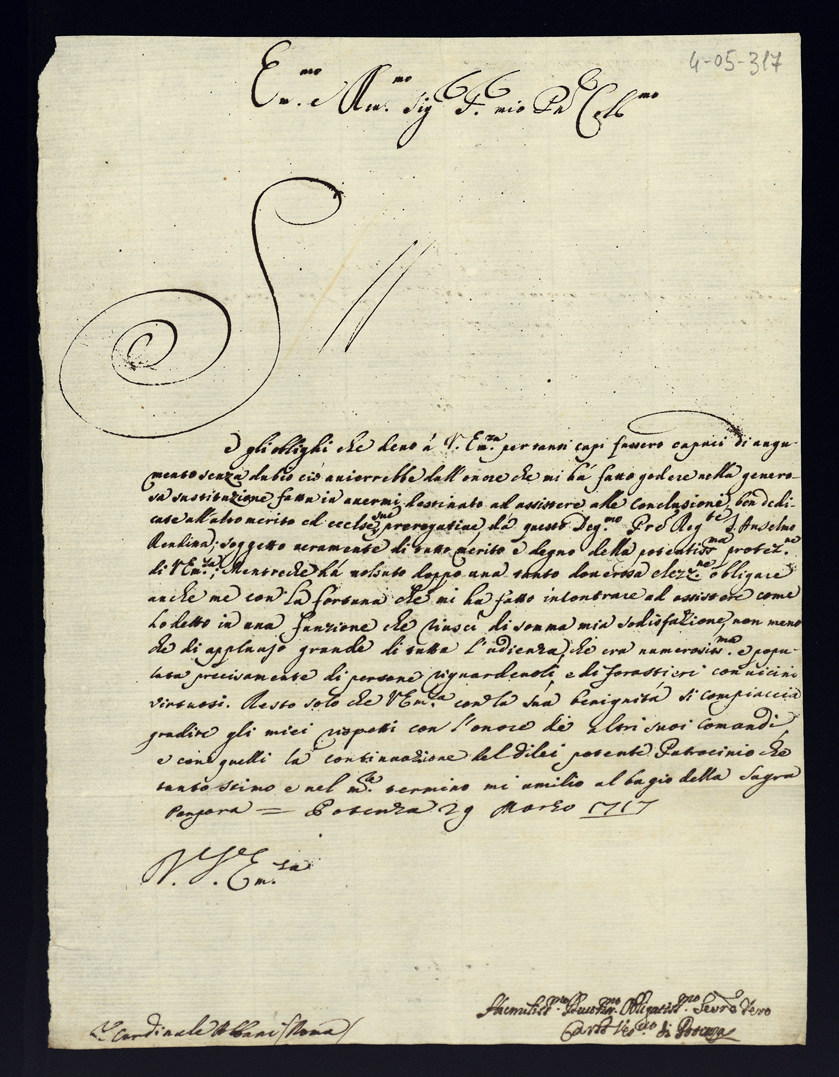 4-05-317
Em.mo e Rev.mo Sig.r P.ron mio Col.mo
Se gli oblighi che devo à V. Em.za per tanti capi fussero capaci di augu-
mento senza dubio ciò aniorrebbe dall'onore che mi hà fatto godere nella genero-
sa sustituzione fatta in avermi destinato ad assistere alle Conclusioni, ben dedi-
cate all'alto merito ed eccelse sue prerogative dà questo Deg.mo Pre Reg.te F. Anselmo
Rendina; soggetto veramente di tutto merito e degno della potentiss.ma protez.ne
di V. Em.za; Mentreche hà voluto doppo una tanto doverosa elez.ne obligare
anche me con la fortuna che mi ha fatto incontrare ad assistere come
hò detto in una funzione che riuscì di somma mia sodisfazione, non meno
che di applauso grande di tutta l'udienza, che era numerosiss.ma e popu-
lata precisamente di persone riguardevoli e di forastieri convicini
virtuosi. Resto solo che V. Em.za con la sua benignità si compiaccia
gradire gli miei rispetti con l'onore de altri suoi Comandi,
e con quelli la continuazione del di lei potente Patrocinio che
tanto stimo e nel m.e termino mi umilio al bagio della Sagra
Porpora = Potenza 29 Marzo 1717
V. S. Em.za
S.r Cardinale Albani (Roma)
Humiliss.mo Obligatiss.mo Serv.re Vero
Carlo Ves.vo di Potenza